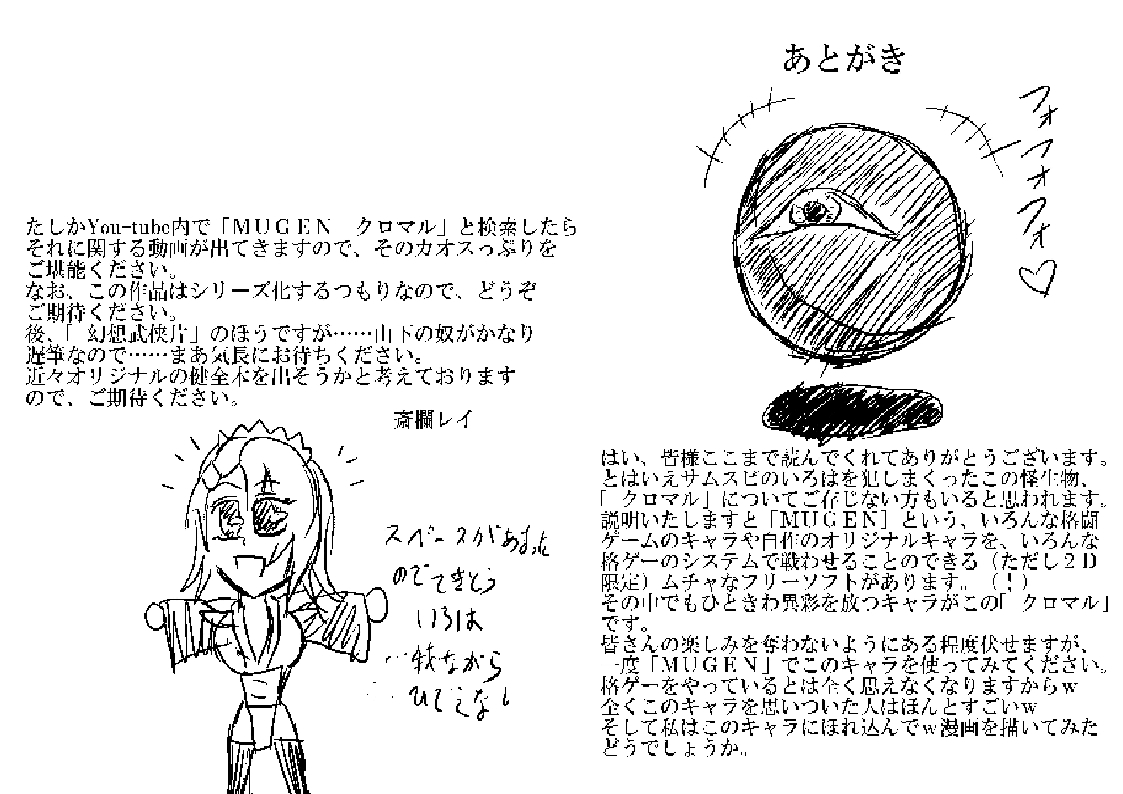 あとがき
フォフォフォ♡
はい、皆様ここまで読んでくれてありがとうございます。
とはいえサムスピのいろはを犯しまくったこの怪生物、
「クロマル」についてご存じない方もいると思われます。
説明いたしますと「ＭＵＧＥＮ」という、いろんな格闘
ゲームのキャラや自作のオリジナルキャラを、いろんな
格ゲーのシステムで戦わせることのできる（ただし２Ｄ
限定）ムチャなフリーソフトがあります。（！）
その中でもひときわ異彩を放つキャラがこの「クロマル」
です。
皆さんの楽しみを奪わないようにある程度伏せますが、
一度「ＭＵＧＥＮ」でこのキャラを使ってみてください。
格ゲーをやっているとは全く思えなくなりますからｗ
全くこのキャラを思いついた人はほんとすごいｗ
そして私はこのキャラにほれ込んでｗ漫画を描いてみた
どうでしょうか。
たしかYou-tube内で「ＭＵＧＥＮ　クロマル」と検索したら
それに関する動画が出てきますので、そのカオスっぷりを
ご堪能ください。
なお、この作品はシリーズ化するつもりなので、どうぞ
ご期待ください。
後、「幻想武侠片」のほうですが……山下の奴がかなり
遅筆なので……まあ気長にお待ちください。
近々オリジナルの健全本を出そうかと考えております
ので、ご期待ください。
斎欄レイ
スペースがあまった
のでてきとう
いろは
我ながら
ひでえなし